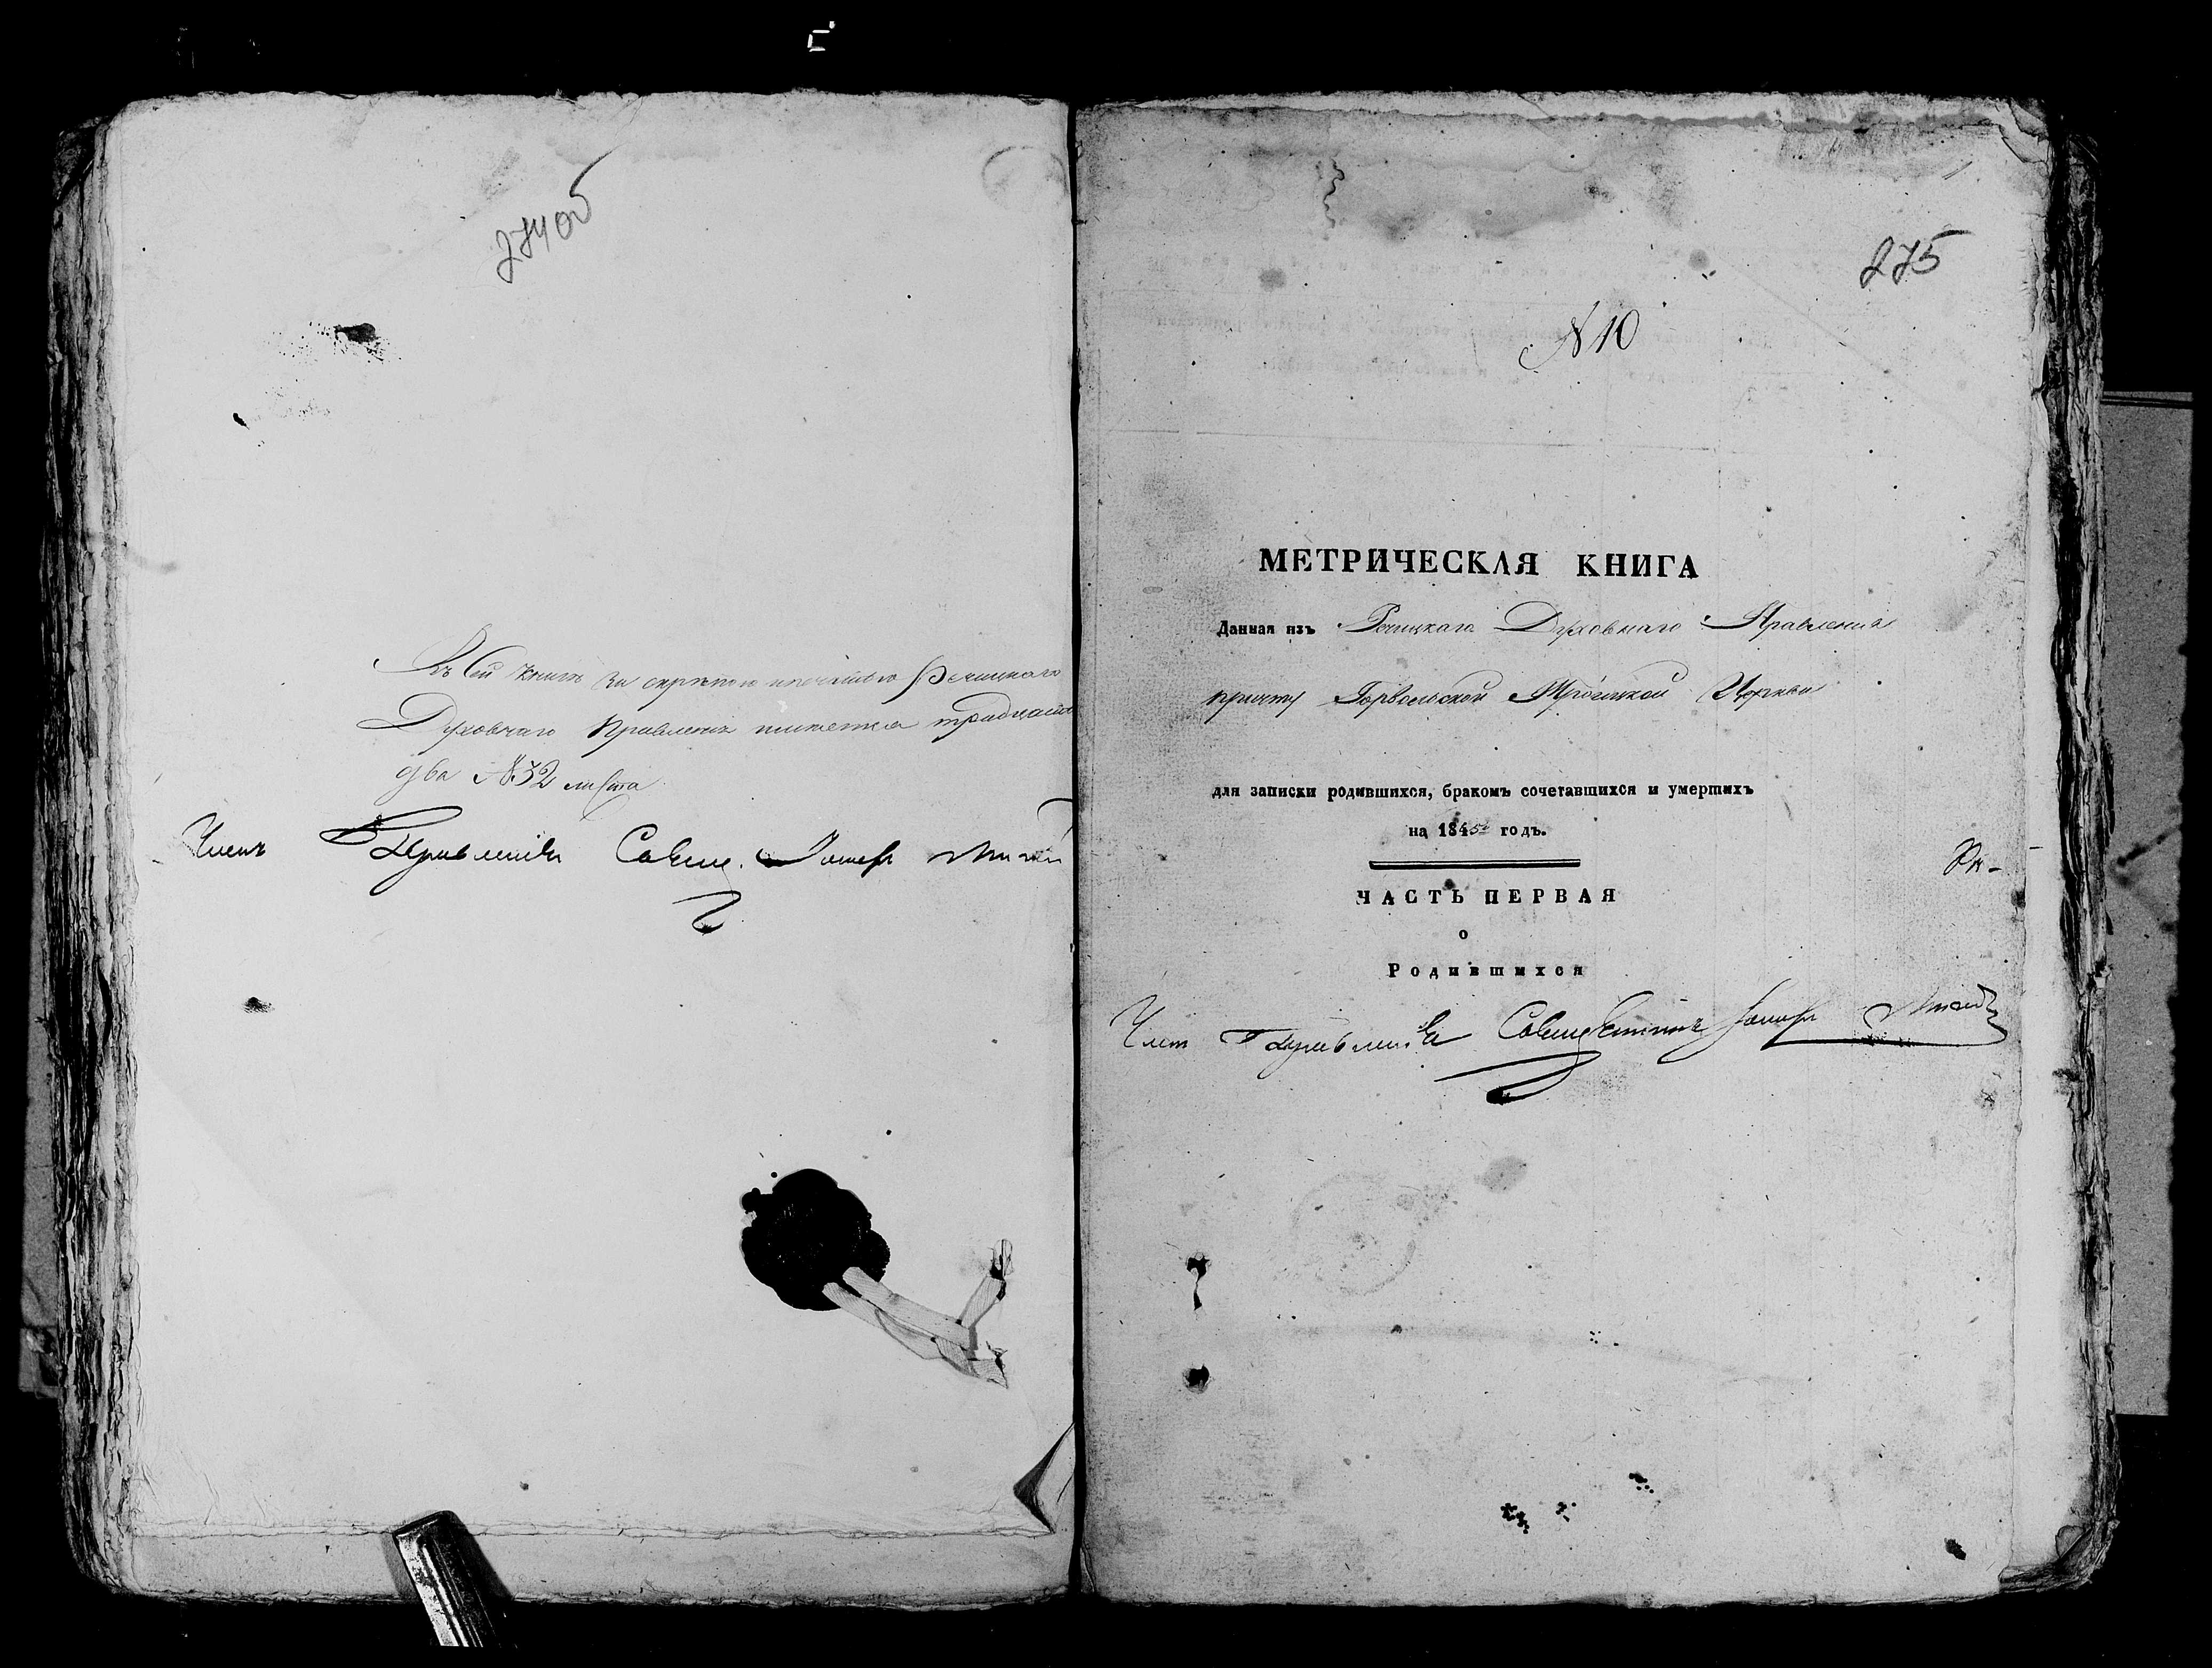 274об
Въ сей книгѣ за скрѣпою и печатью Речицкаго
Духовнаго Правления листовъ тридцать
два № 32 листа
Членъ Правления Священ.
275
N 10
МЕТРИЧЕСКАЯ КНИГА
Данная изъ Речицкаго Духовнаго Правления
причту Горвольской Троицкой Церкви
для записки родившихся, бракомъ сочетавшихся и умершихъ
на 1845й годъ.
ЧАСТЬ ПЕРВАЯ
о
Родившихся
Членъ Правления Священникъ